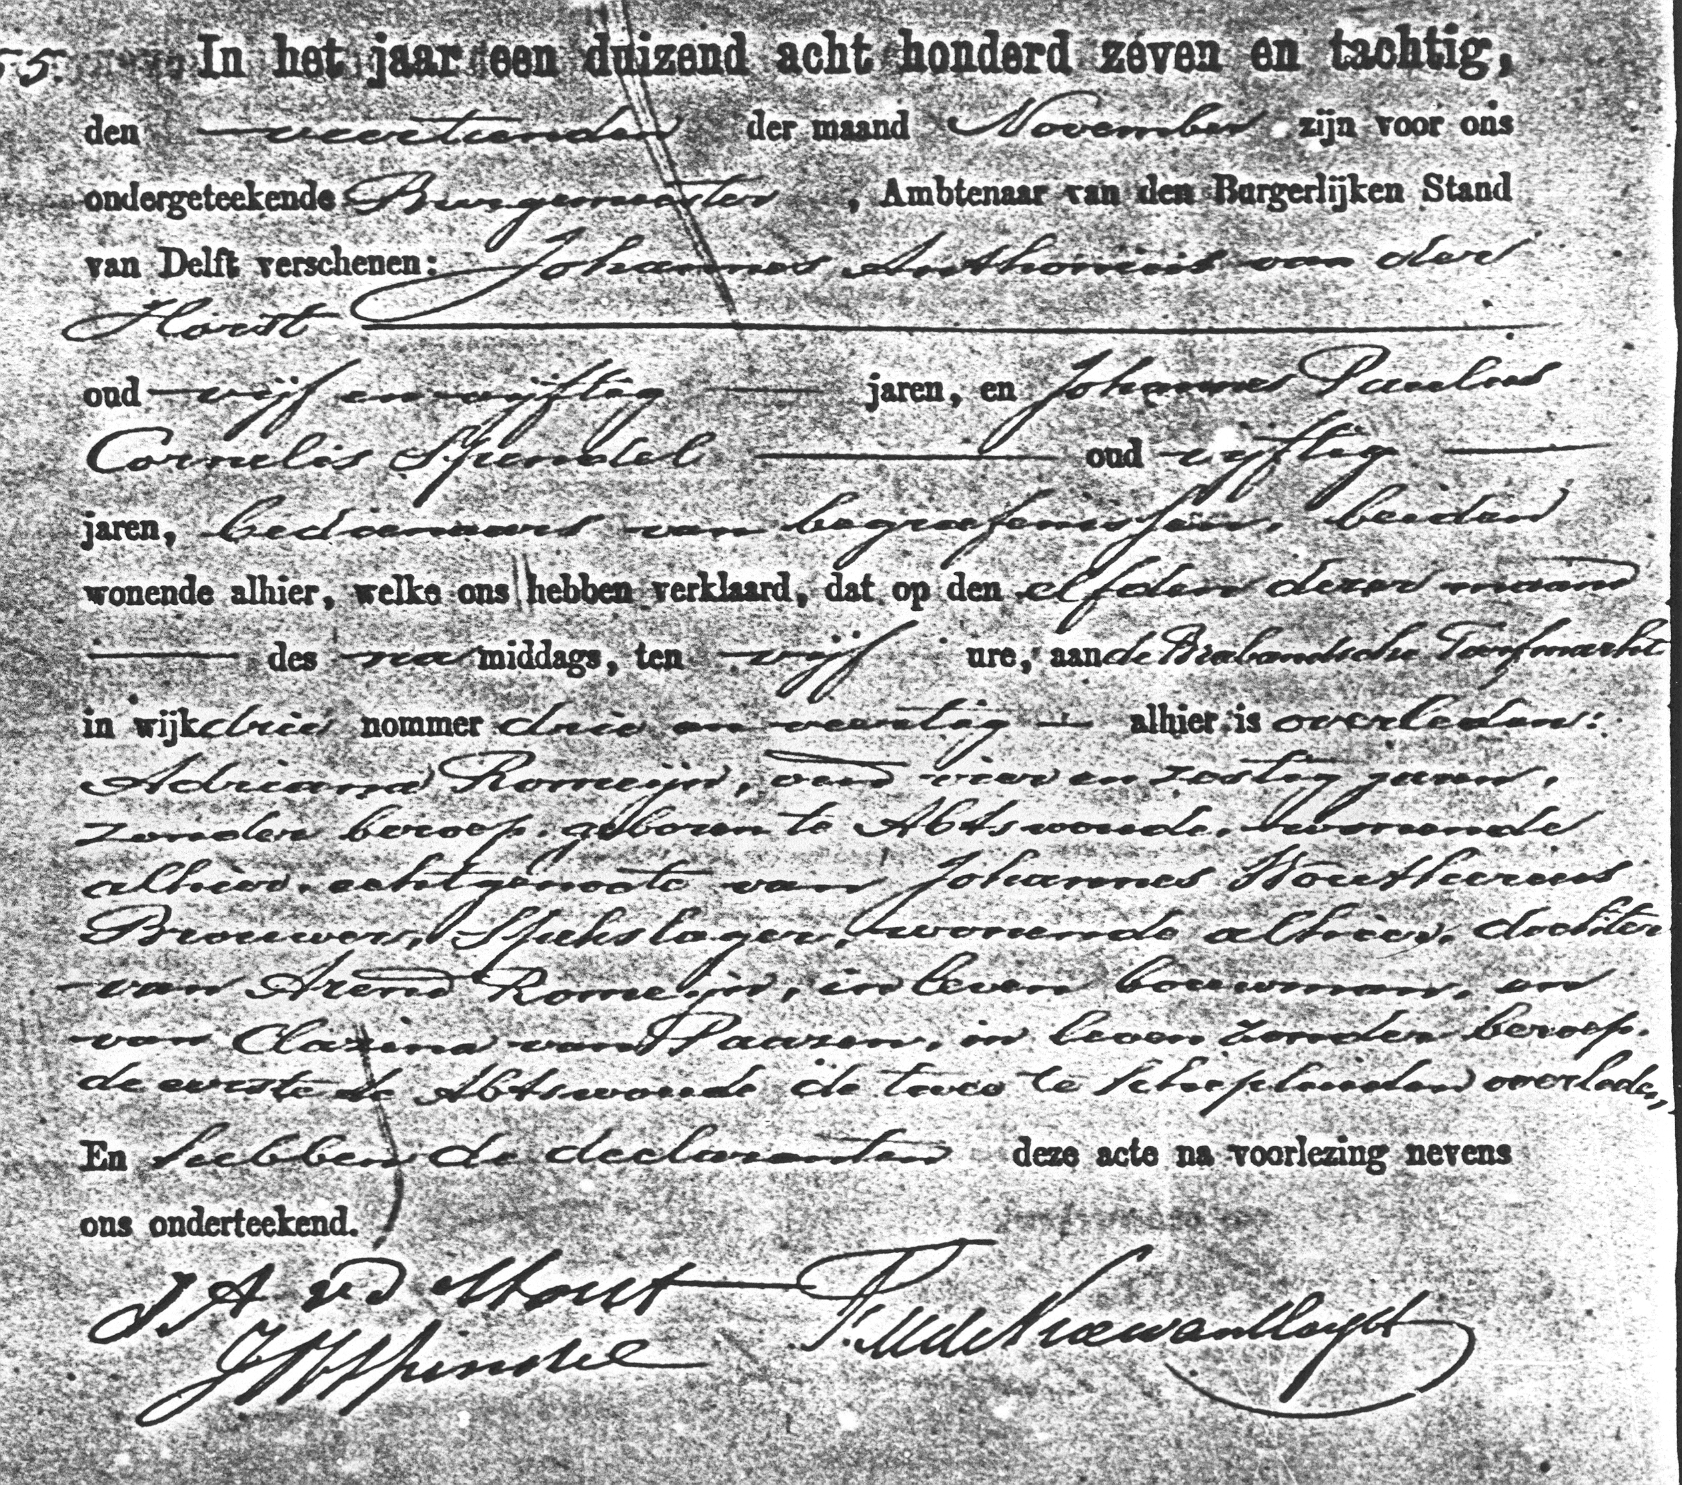 55.
In het jaar een duizend acht honderd zeven en tachtig,
den veertienden der maand November zijn voor ons
ondergeteekende Burgemeester, Ambtenaar van den Burgerlijken Stand
van Delft verschenen: Johannes Anthonius van der
Horst
oud vijf en vijftig jaren, en Johannes Paulus
Cornelis Spendel oud vijftig
jaren, bedienaars van begrafenissen, beiden
wonende alhier, welke ons hebben verklaard, dat op den elfden dezer maand
des na middags, ten vijf ure, aan de Brabandsche Turfmarkt
in wijk drie nommer drie en veertig alhier is overleden:
Adriana Romeijn, oud vier en zestig jaren,
zonder beroep, geboren te Abtswoude, wonende
alhier, echtgenoote van Johannes Woutherus
Brouwer, Spekslager, wonende alhier, dochter
van Arend Romeijn, in leven bouwman, en
van Clazina van Paazen, in leven zonder beroep,
de eerste te Abtswoude de twee te Schipluiden overleden,
En hebben de declaranten deze acte na voorlezing nevens
ons onderteekend.
J A vd Horst